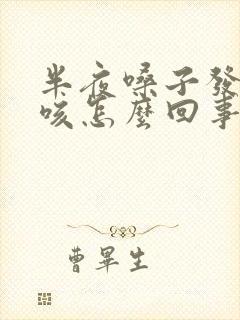 半夜嗓子發
咳怎麼回事
曹畢生